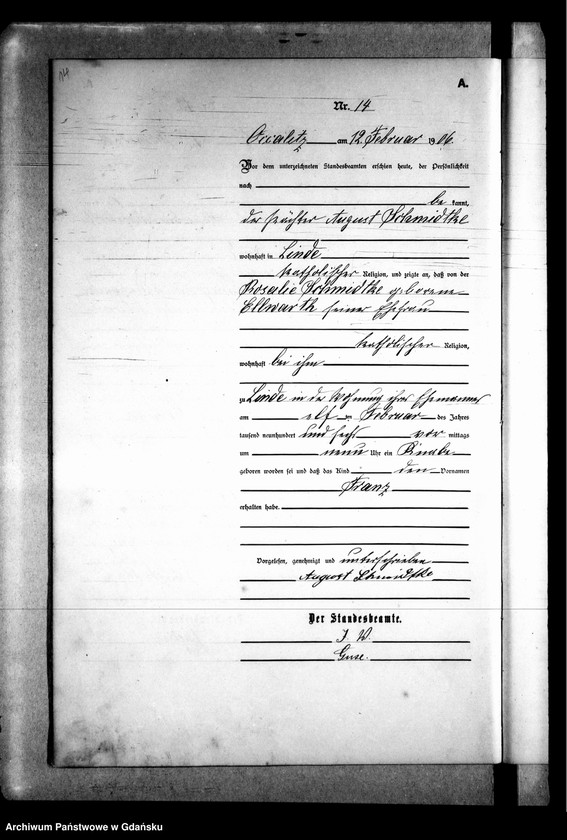 14
A.
Nr. 14
am 12 Februar 1906.
Vor dem unterzeichneten Standesbeamten erschien heute, der Persönlichkeit
nach
be kannt,
der Pächter August Schmidtke
wohnhaft in Linde
katholischer Religion, und zeigte an, daß von der
Rosalie Schmidtke geborene
Ellwarth seiner Ehefrau
katholischer Religion,
wohnhaft bei ihm
zu Linde in der Wohnung ihres Ehemannes
am elf ten Februar des Jahres
tausend neunhundert und sechs vor mittags
um neun Uhr ein Knabe
geboren worden sei und daß das Kind den Vornamen
Franz
erhalten habe.
Vorgelesen, genehmigt und unterschrieben
August Schmidtke
Der Standesbeamte.
J. V.
Guse.
Archiwum Państwowe w Gdańsku